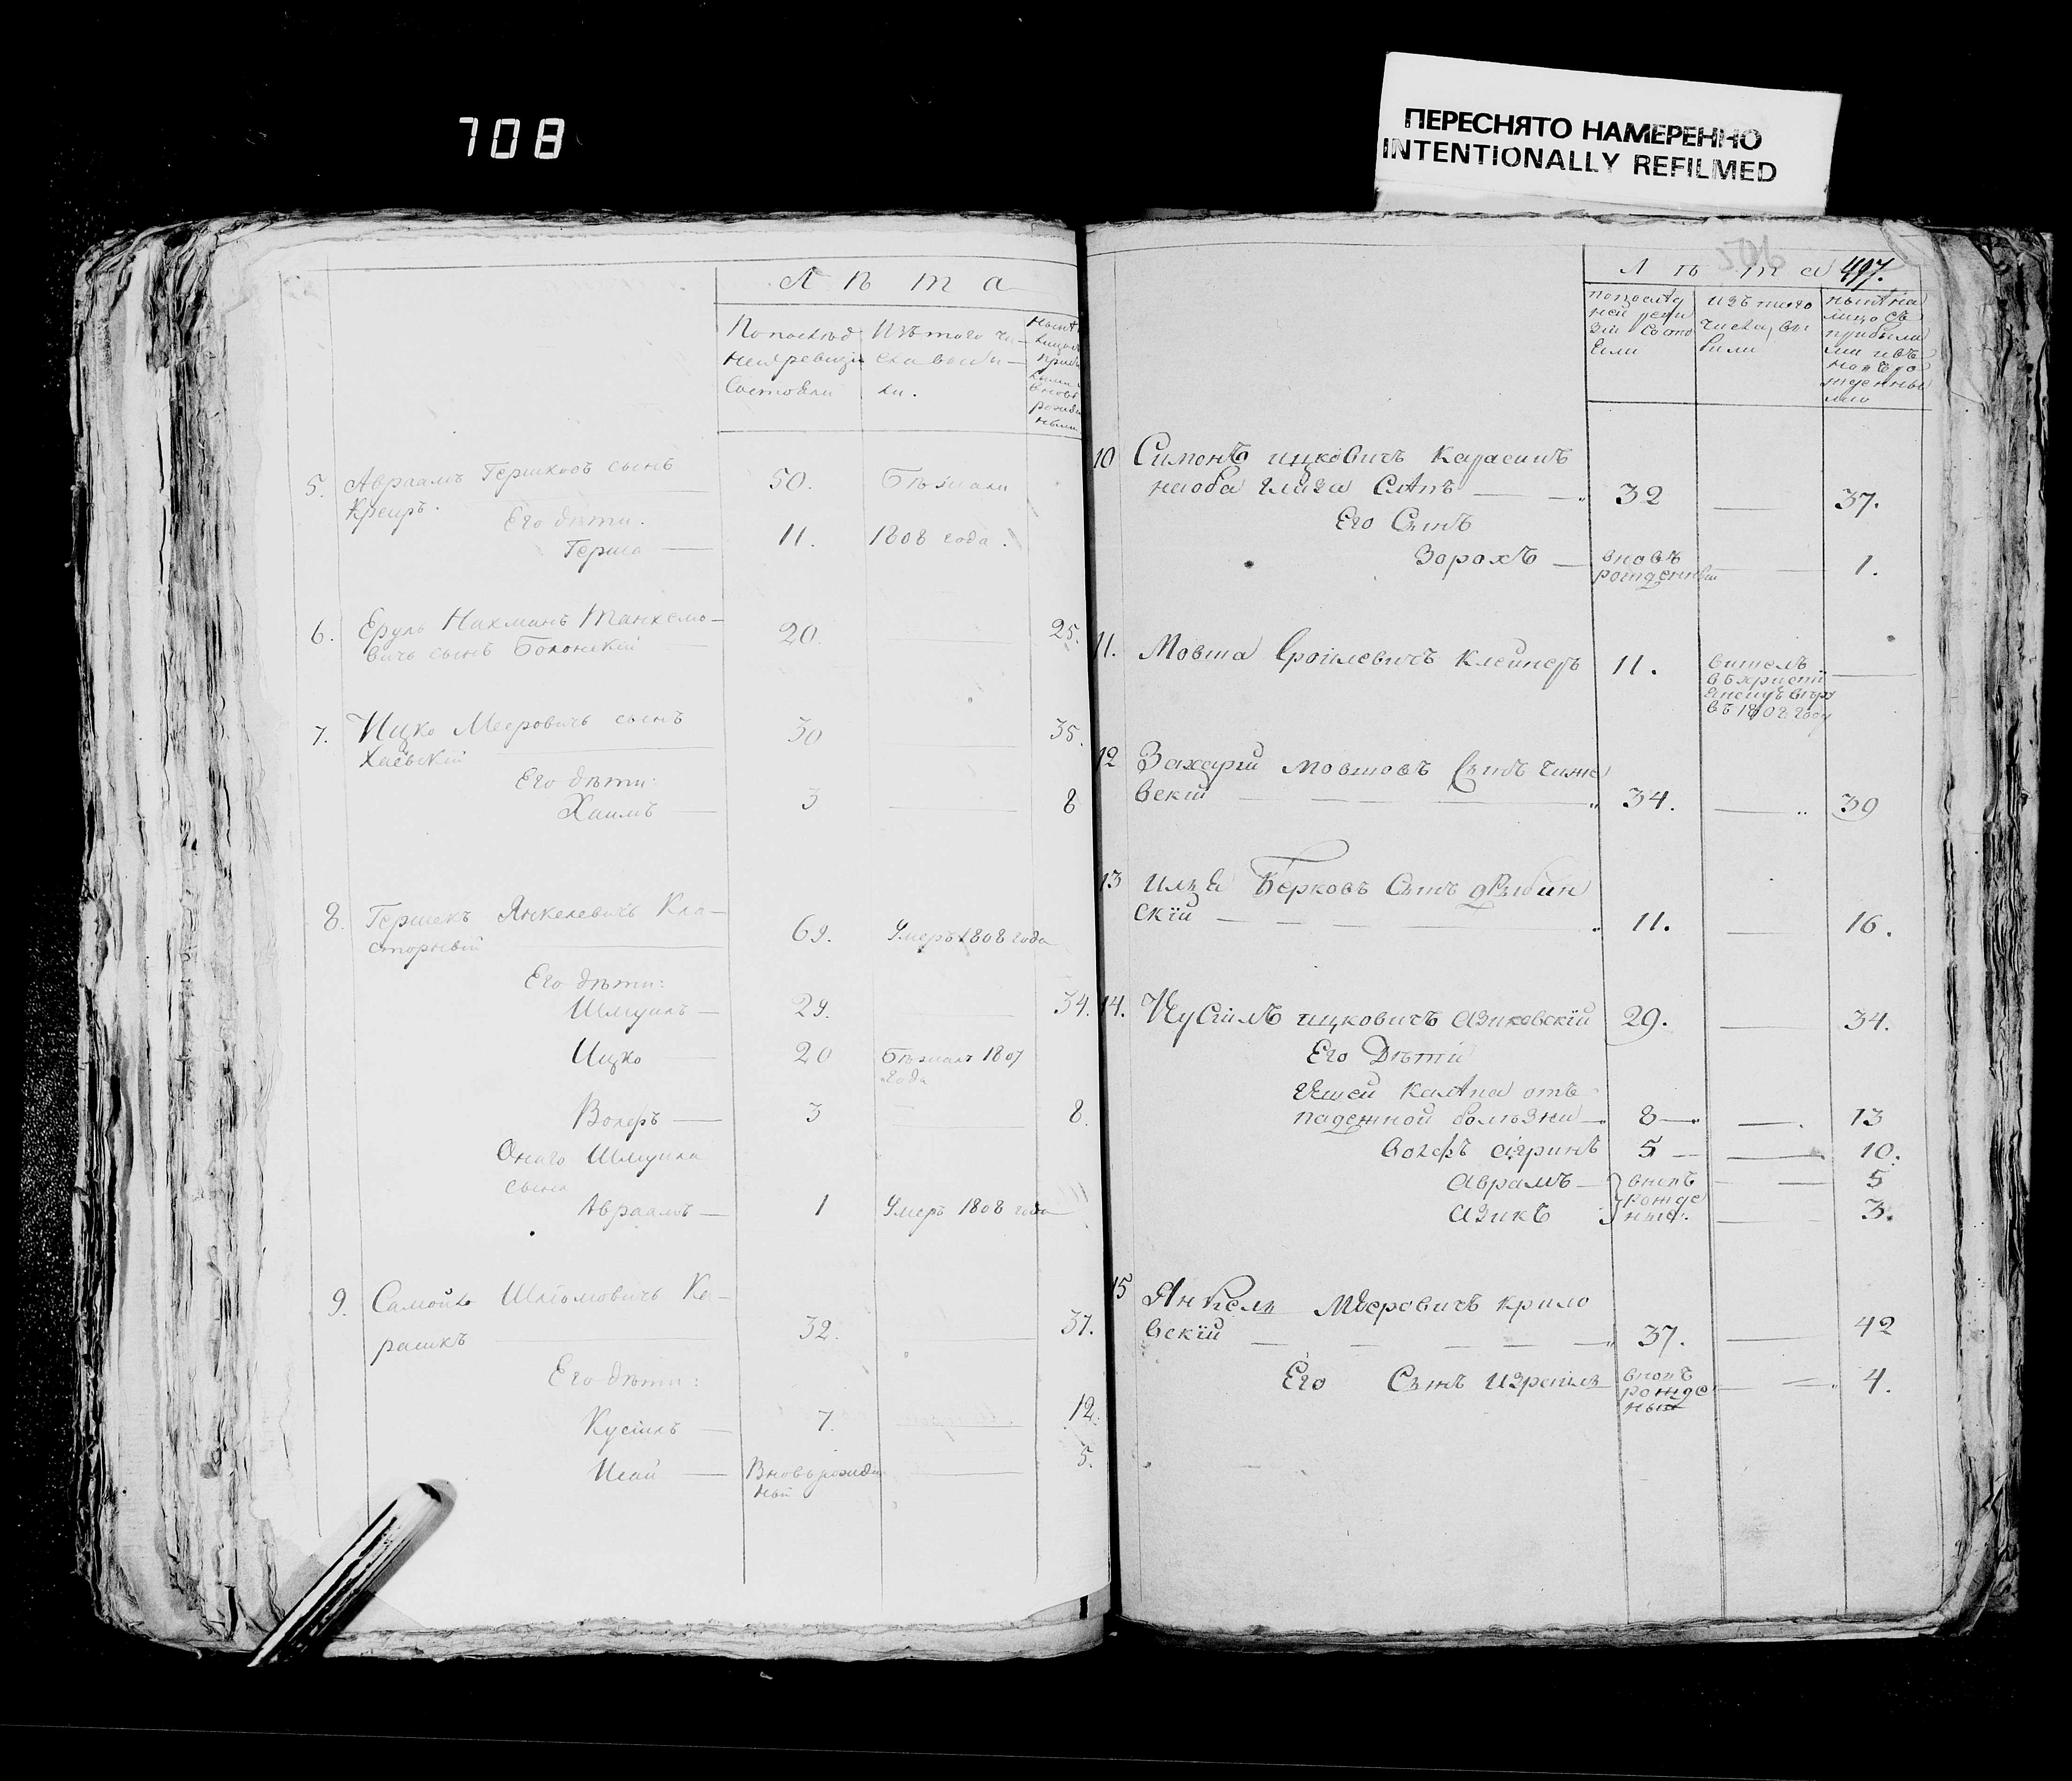 708
ПЕРЕСНЯТО НАМЕРЕННО
INTENTIONALLY REFILMED
Лѣта
По послѣд
ней ревизіи
состояли
Изъ того чи-
сла выбы-
ли.
5. Авраамъ Гершковъ сынъ 50. Бѣжали
Креиръ.
Его дѣти.
Герша 11. 1808 года.
6. Еруль Нахманъ Танхемо-
вичъ сынъ Болонскій 20. 25.
7. Ицко Мееровичъ сынъ 30 35.
Хаевскій
Его дѣти:
Хаимъ 3 8
8. Гершекъ Янкелевичъ Кла-
сторный 69. Умеръ 1808 года
Его дѣти:
Шмуиль 29. 34.
Ицко 20 Бѣжалъ 1807
года
Волеръ 3 8.
Онаго Шмуила
сынъ
Авраамъ 1 Умеръ 1808 года
9. Самойло Шліомовичъ Ке-
рашкъ 32. 37.
Его дѣти:
Кусіилъ 7. 12.
Исай Вновь рожден
ный 5.
506
Лѣта 497.
по послѣд
ней реви
зіи состо
яли
изъ того
числа вы
были
нынѣ на
лицо съ
прибыли
ми и въ
новь ро
жденны
ми
10 Симонъ Ицковичъ Карасикъ
на оба глаза слѣпъ 32 37.
Его Сынъ
Зорохъ вновъ
рожденный 1.
11. Мовша Сроілевичъ Клейнеръ 11. вышелъ
въ христі
анскую вѣру
въ 1808 году
12 Захарій Мовшовъ Сынъ Чижо
вскій 34. 39
13 Ильа Берковъ Сынъ Дубин
скій 11. 16.
14. Кусіилъ Ицковичъ Азиковскій 29. 34.
Его Дѣти
калѣка отъ
падежной болѣзни 8 13
5 10.
Аврамъ вновъ 5
рожде
Азикъ ные. 3.
15 Янкель Мееровичъ Крило
вскій 37. 42
Его Сынъ Израиль вновъ 4.
рожде
ный